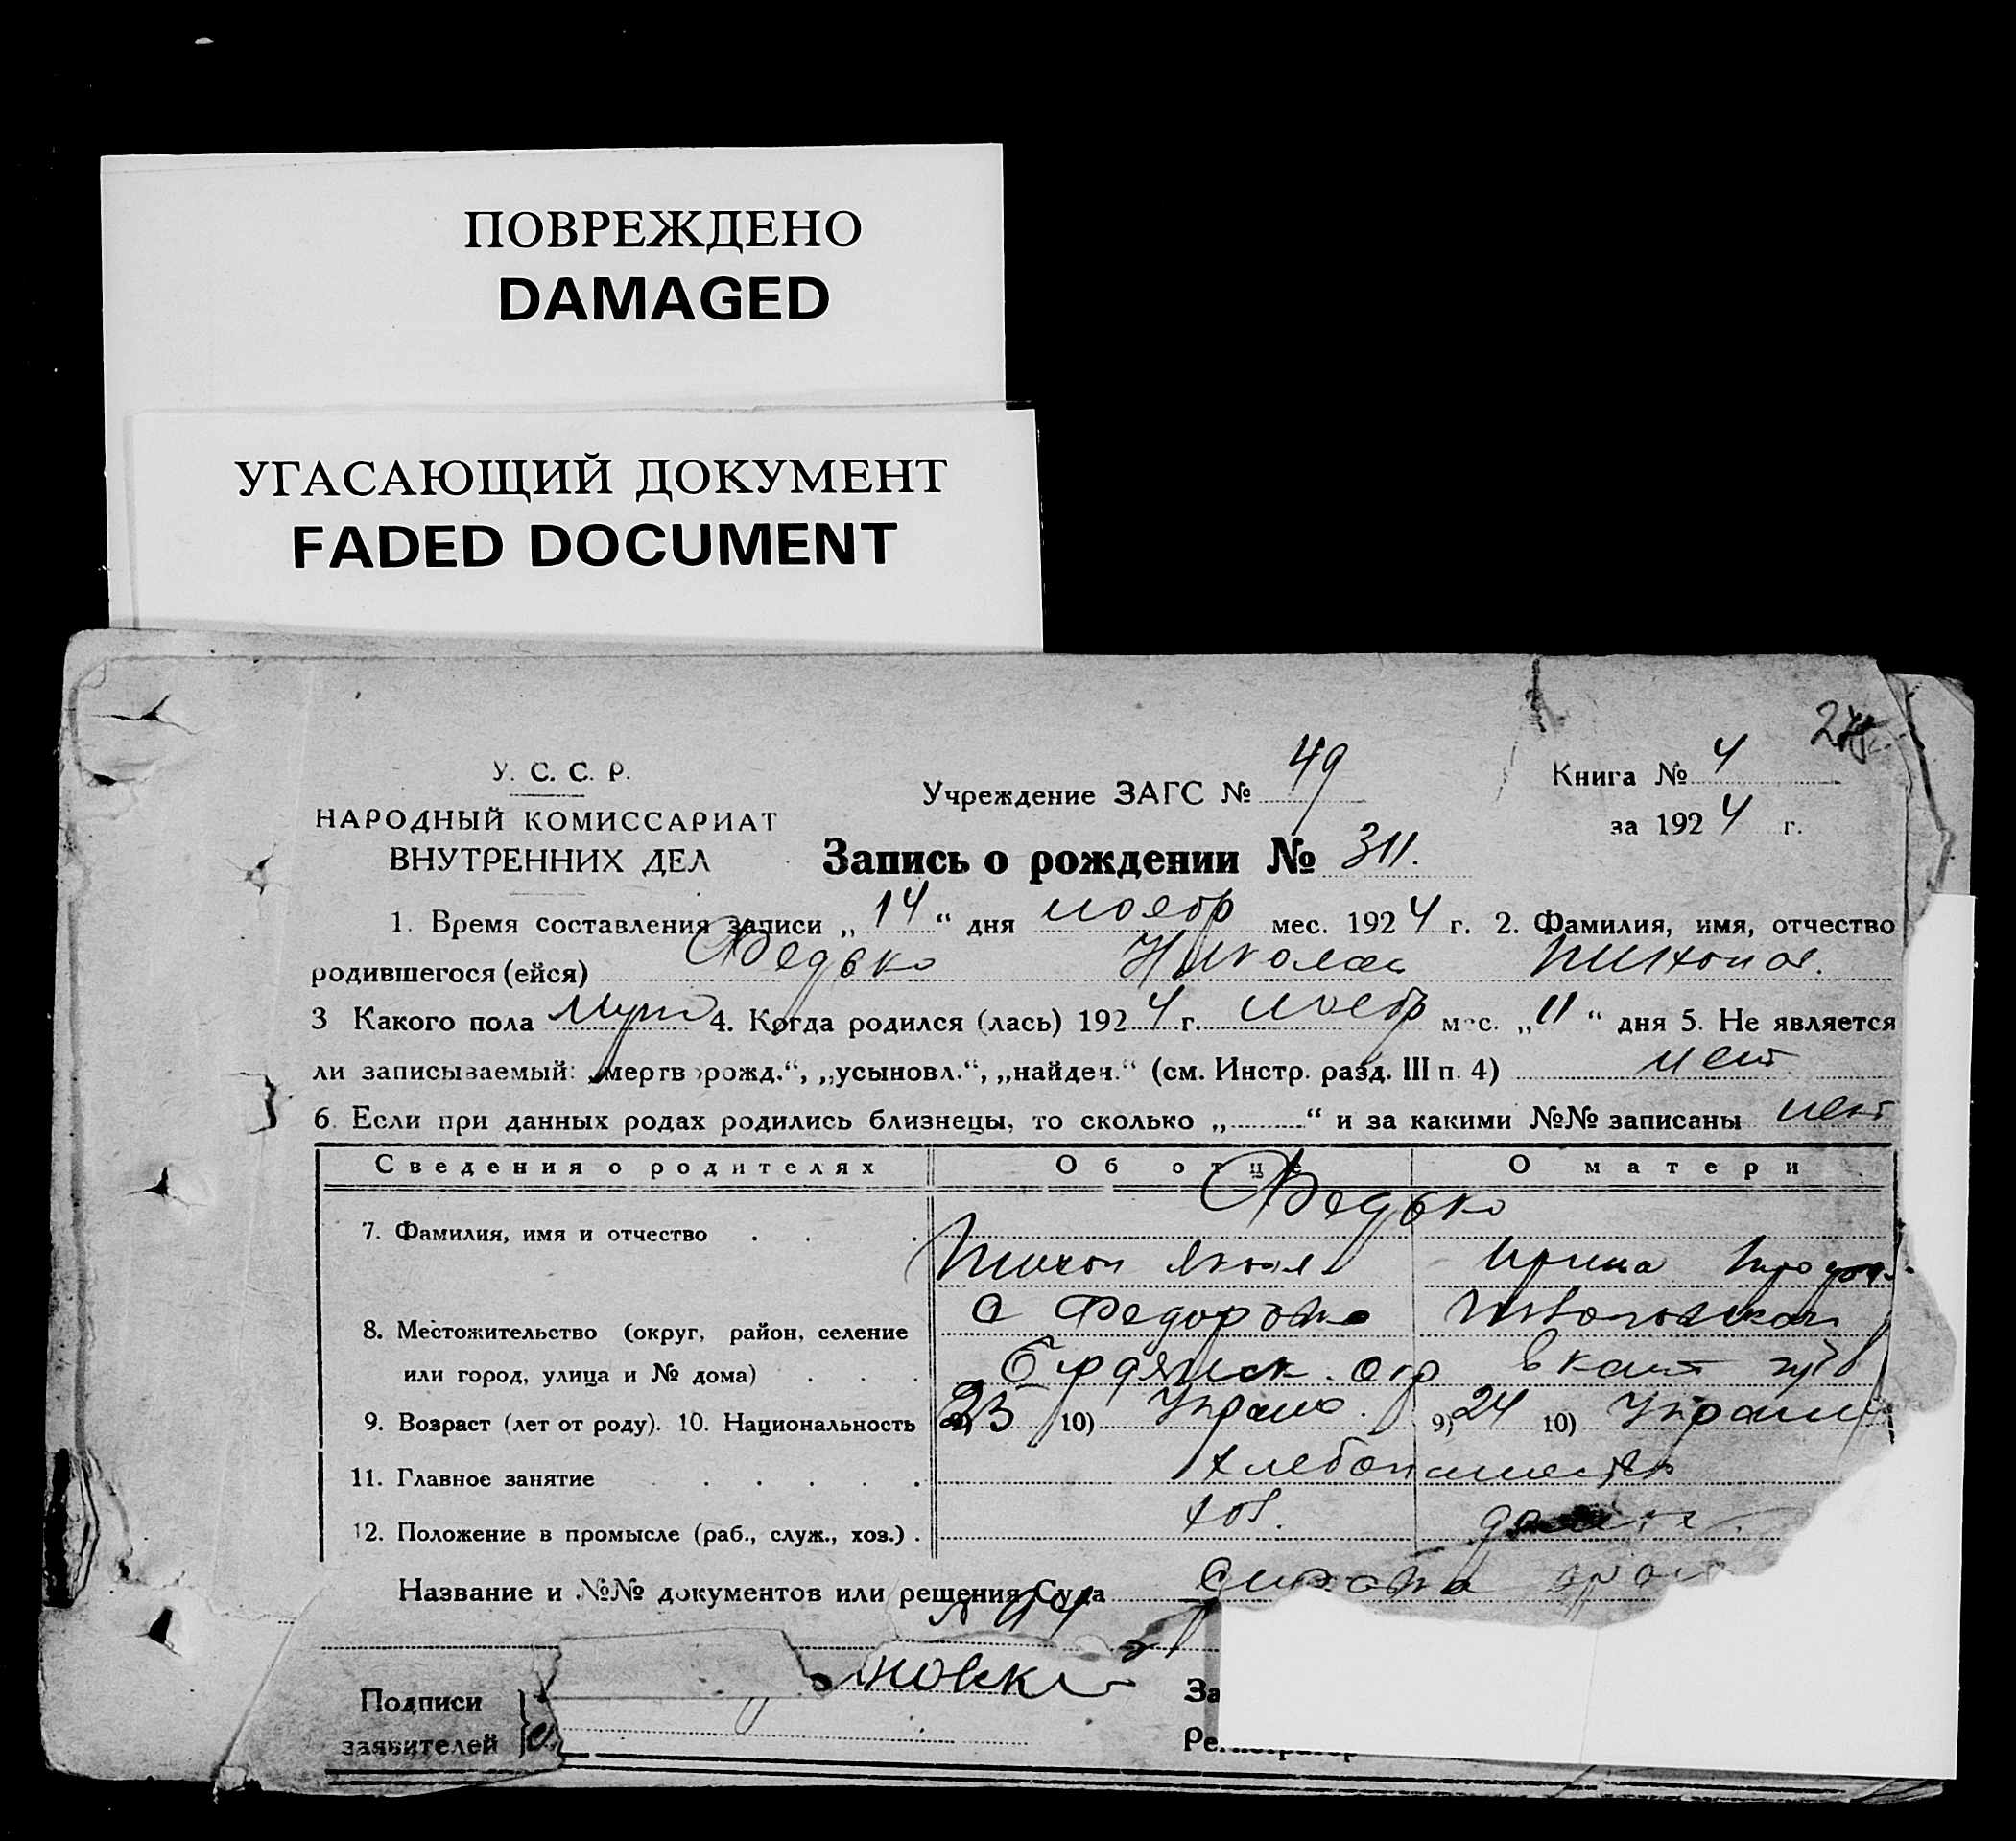 ПОВРЕЖДЕНО
DAMAGED
УГАСАЮЩИЙ ДОКУМЕНТ
FADED DOCUMENT
У. С. С. Р.
НАРОДНЫЙ КОМИССАРИАТ
ВНУТРЕННИХ ДЕЛ
Учреждение ЗАГС № 49
Книга № 4
за 1924 г.
Запись о рождении № 311.
1. Время составления записи „ 14 “ дня ноябр мес. 1924 г. 2. Фамилия, имя, отчество
родившегося (ейся) Федько Николай
3 Какого пола муж 4. Когда родился (лась) 1924 г. ноебр мес. „ 11 “ дня 5. Не является
ли записываемый: „мертворожд.“, „усыновл.“, „найден.“ (см. Инстр. разд. III п. 4) нет
6. Если при данных родах родились близнецы, то сколько „ “ и за какими №№ записаны нет
Сведения о родителях Об отце О матери
Федько
7. Фамилия, имя и отчество
Ирина
8. Местожительство (округ, район, селение
с Федоровка
или город, улица и № дома)
Бердянск. окр
9. Возраст (лет от роду). 10. Национальность 23 10) Украин. 9) 24 10) Украин
11. Главное занятие
12. Положение в промысле (раб., служ., хоз.) . хоз.
Название и №№ документов или решения Суда
Подписи
заявителей
За
Регистратор